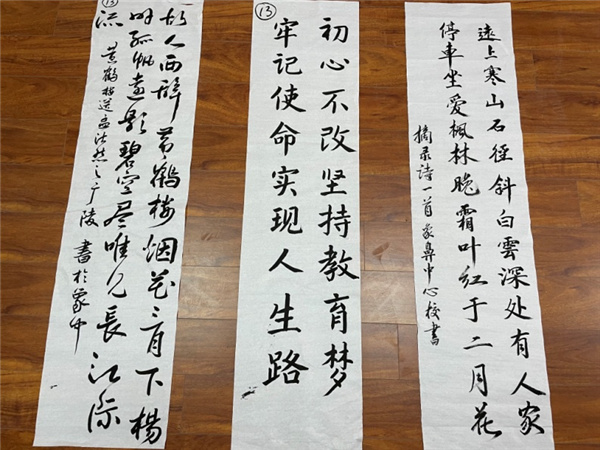 遠上寒山石徑斜白雲深处有人家
停車坐爱楓林晚霜叶红于二月花
摘录诗一首象鼻中心校書
13
初心不改坚持教育梦
牢记使命实现人生路
13
故人西辭黄鶴楼烟花三月下楊
州孤帆遠影碧空尽唯见長江际
流
黄鶴楼送孟浩然之广陵書於象中